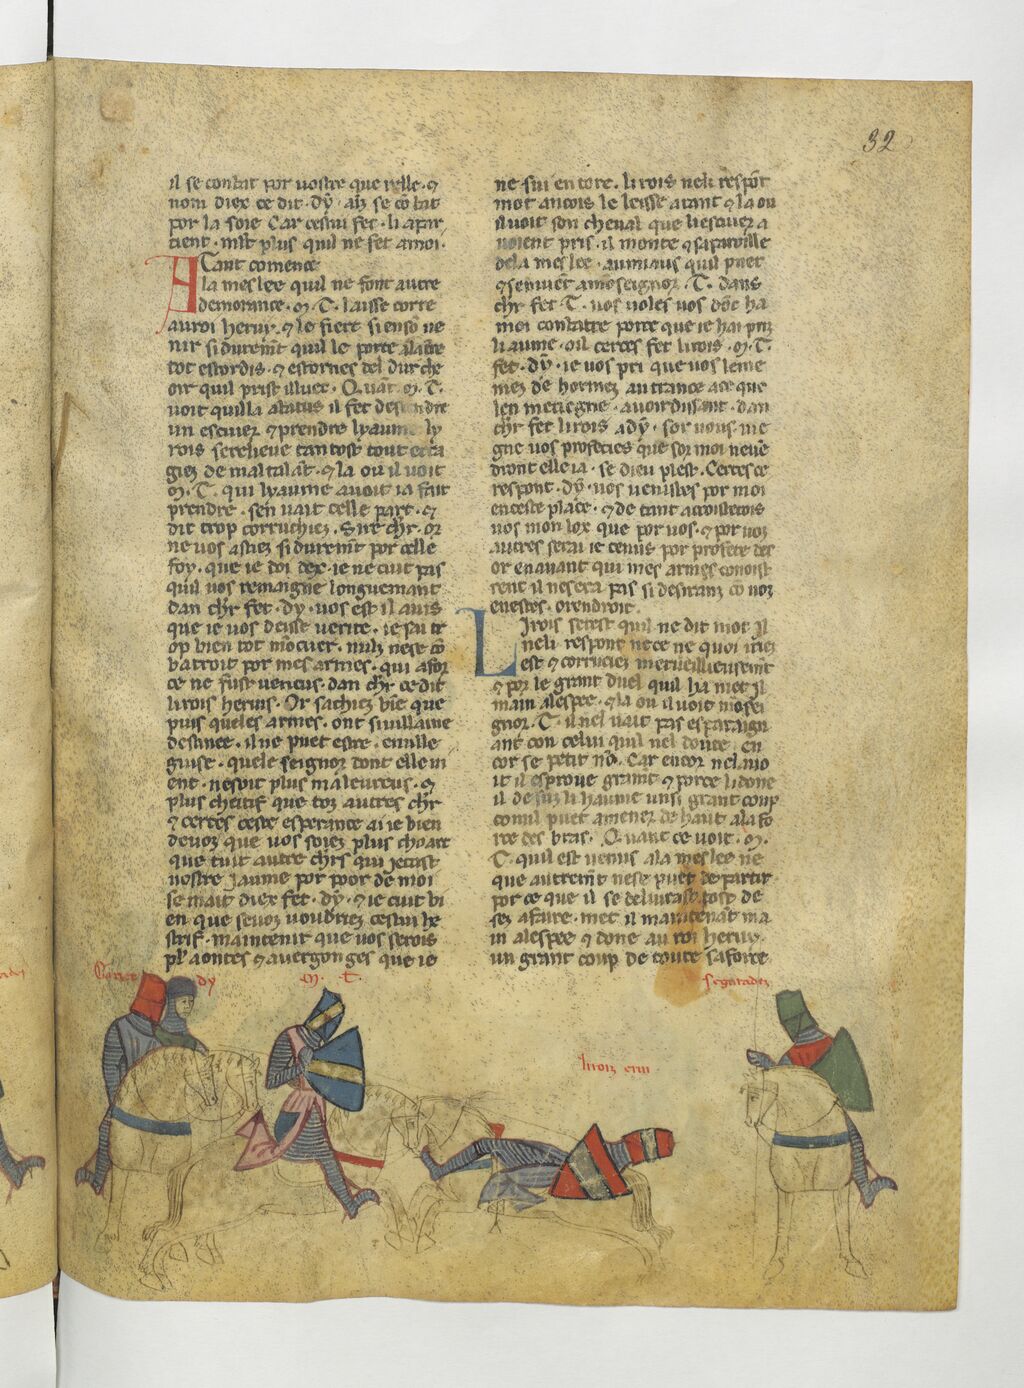 32
il se conbat por vostre querelle · ⁊
nom diex ce dit · dy̅ · ainz se co̅bat
por la soie Car cestui fet · li apar
tient · mlt plus quil ne fet a moi ·
ATant comence
la meslee quil ne font autre
demorance · M · T · laisse corre
au roi hervi · ⁊ le fiert si en so̅ ve
nir si durem̅t quil le porte a la t̅re
tot estordis · ⁊ estornes del dur che
oir quil prist illuec · Quant · M · T ·
voit quil la abatus il fet descendre
un escuier ⁊ prendre lyaume · ly
rois se relieve tantost tout enra
giez de maltala̅t · ⁊ la ou il voit
M · T · qui lyaume avoit ia fait
prendre · sen vait celle part · ⁊
dit trop corruchiez · Sire ch̅r · or
ne vos astiez si durem̅t por celle
foy · que ie doi dex · ie ne cuit pas
quil vos remaigne longuemant
dan ch̅r fet · dy̅ · vos est il avis
que ie vos deisse verite · ie sai tr
op bien tot mocuer · nulz ne se co̅
batroit por mes armes · qui a for
ce ne fust vencus · dan ch̅r ce dit
li rois hervis · Or sachiez bie̅ que
puis queles armes · ont si villaine
destinee · il ne puet estre · en nulle
guise · que le seignor dont elle vi
ent · ne soit plus maleureus · ⁊
plus cheitif que toz autres ch̅r
⁊ certes ceste esperance ai ie bien
de voz que vos soiez plus choart
que tuit autre ch̅rs qui iettast
vostre yaume por poor de moi
se mait diex fet · dy̅ · ⁊ ie cuit bi
en que se voz voudriez cestui he
strif · maintenir que vos serois
pl' aontes ⁊ avergonges que ie
ne sui encore · li rois ne li respo̅t
mot ancois le lesse atant ⁊ la ou
il voit son cheval que li escuier a
voient pris · il monte ⁊ saparoille
de la meslee · au miaus quil puet
⁊ sen vie̅t a monseignor · T · dans
ch̅r fet T · vos voles vos do̅c ha
moi conbatre porce que ie hai pris
liaume · oil certes fet li rois · M · T ·
fet · dy̅ · ie vos pri que vos le me
mez de hormez autrance a ce que
len meregne · a voir disant · dan
ch̅r fet li rois a dy̅ · sor vous ve
gne vos profecies que sor moi neve̅
dront elle ia · se dieu plest · Certes ce
respont · dy̅ · vos venistes por moi
en ceste place · ⁊ de tant acroistetois
vos mon lox que por vos · ⁊ por voz
autres serai ie tenus por profete des
or en avant qui mes armes conoist
rent il ne sera pas si desiranz co̅ voz
evestes · orendroit ·
Li rois se test quil ne dit mot Il
ne li respont ne ce ne quoi iriez
est ⁊ corruciez merveilleusem̅t
⁊ por le grant duel quil ha met Il
main a lespee · ⁊ la ou il voit mo̅sei
gnor · T · il nel vait pas esparaign
ant con celui quil nel doute en
cor se petit no̅ · Car encor nel avo
it il esprove grant ⁊ porce li done
il desus li haume un si grant coup
com il puet amener de haut a la fo
rce des bras · Quant ce voit · M ·
T · quil est venus a la meslee ne
que autrem̅t ne se puet departir
por ce que il se delivrast tost de
sez afaire · met il maintenant ma
in a lespee ⁊ done au roi hervi ·
un grant coup de toute sa force
dy
M · T ·
segurades
li roiz ervi